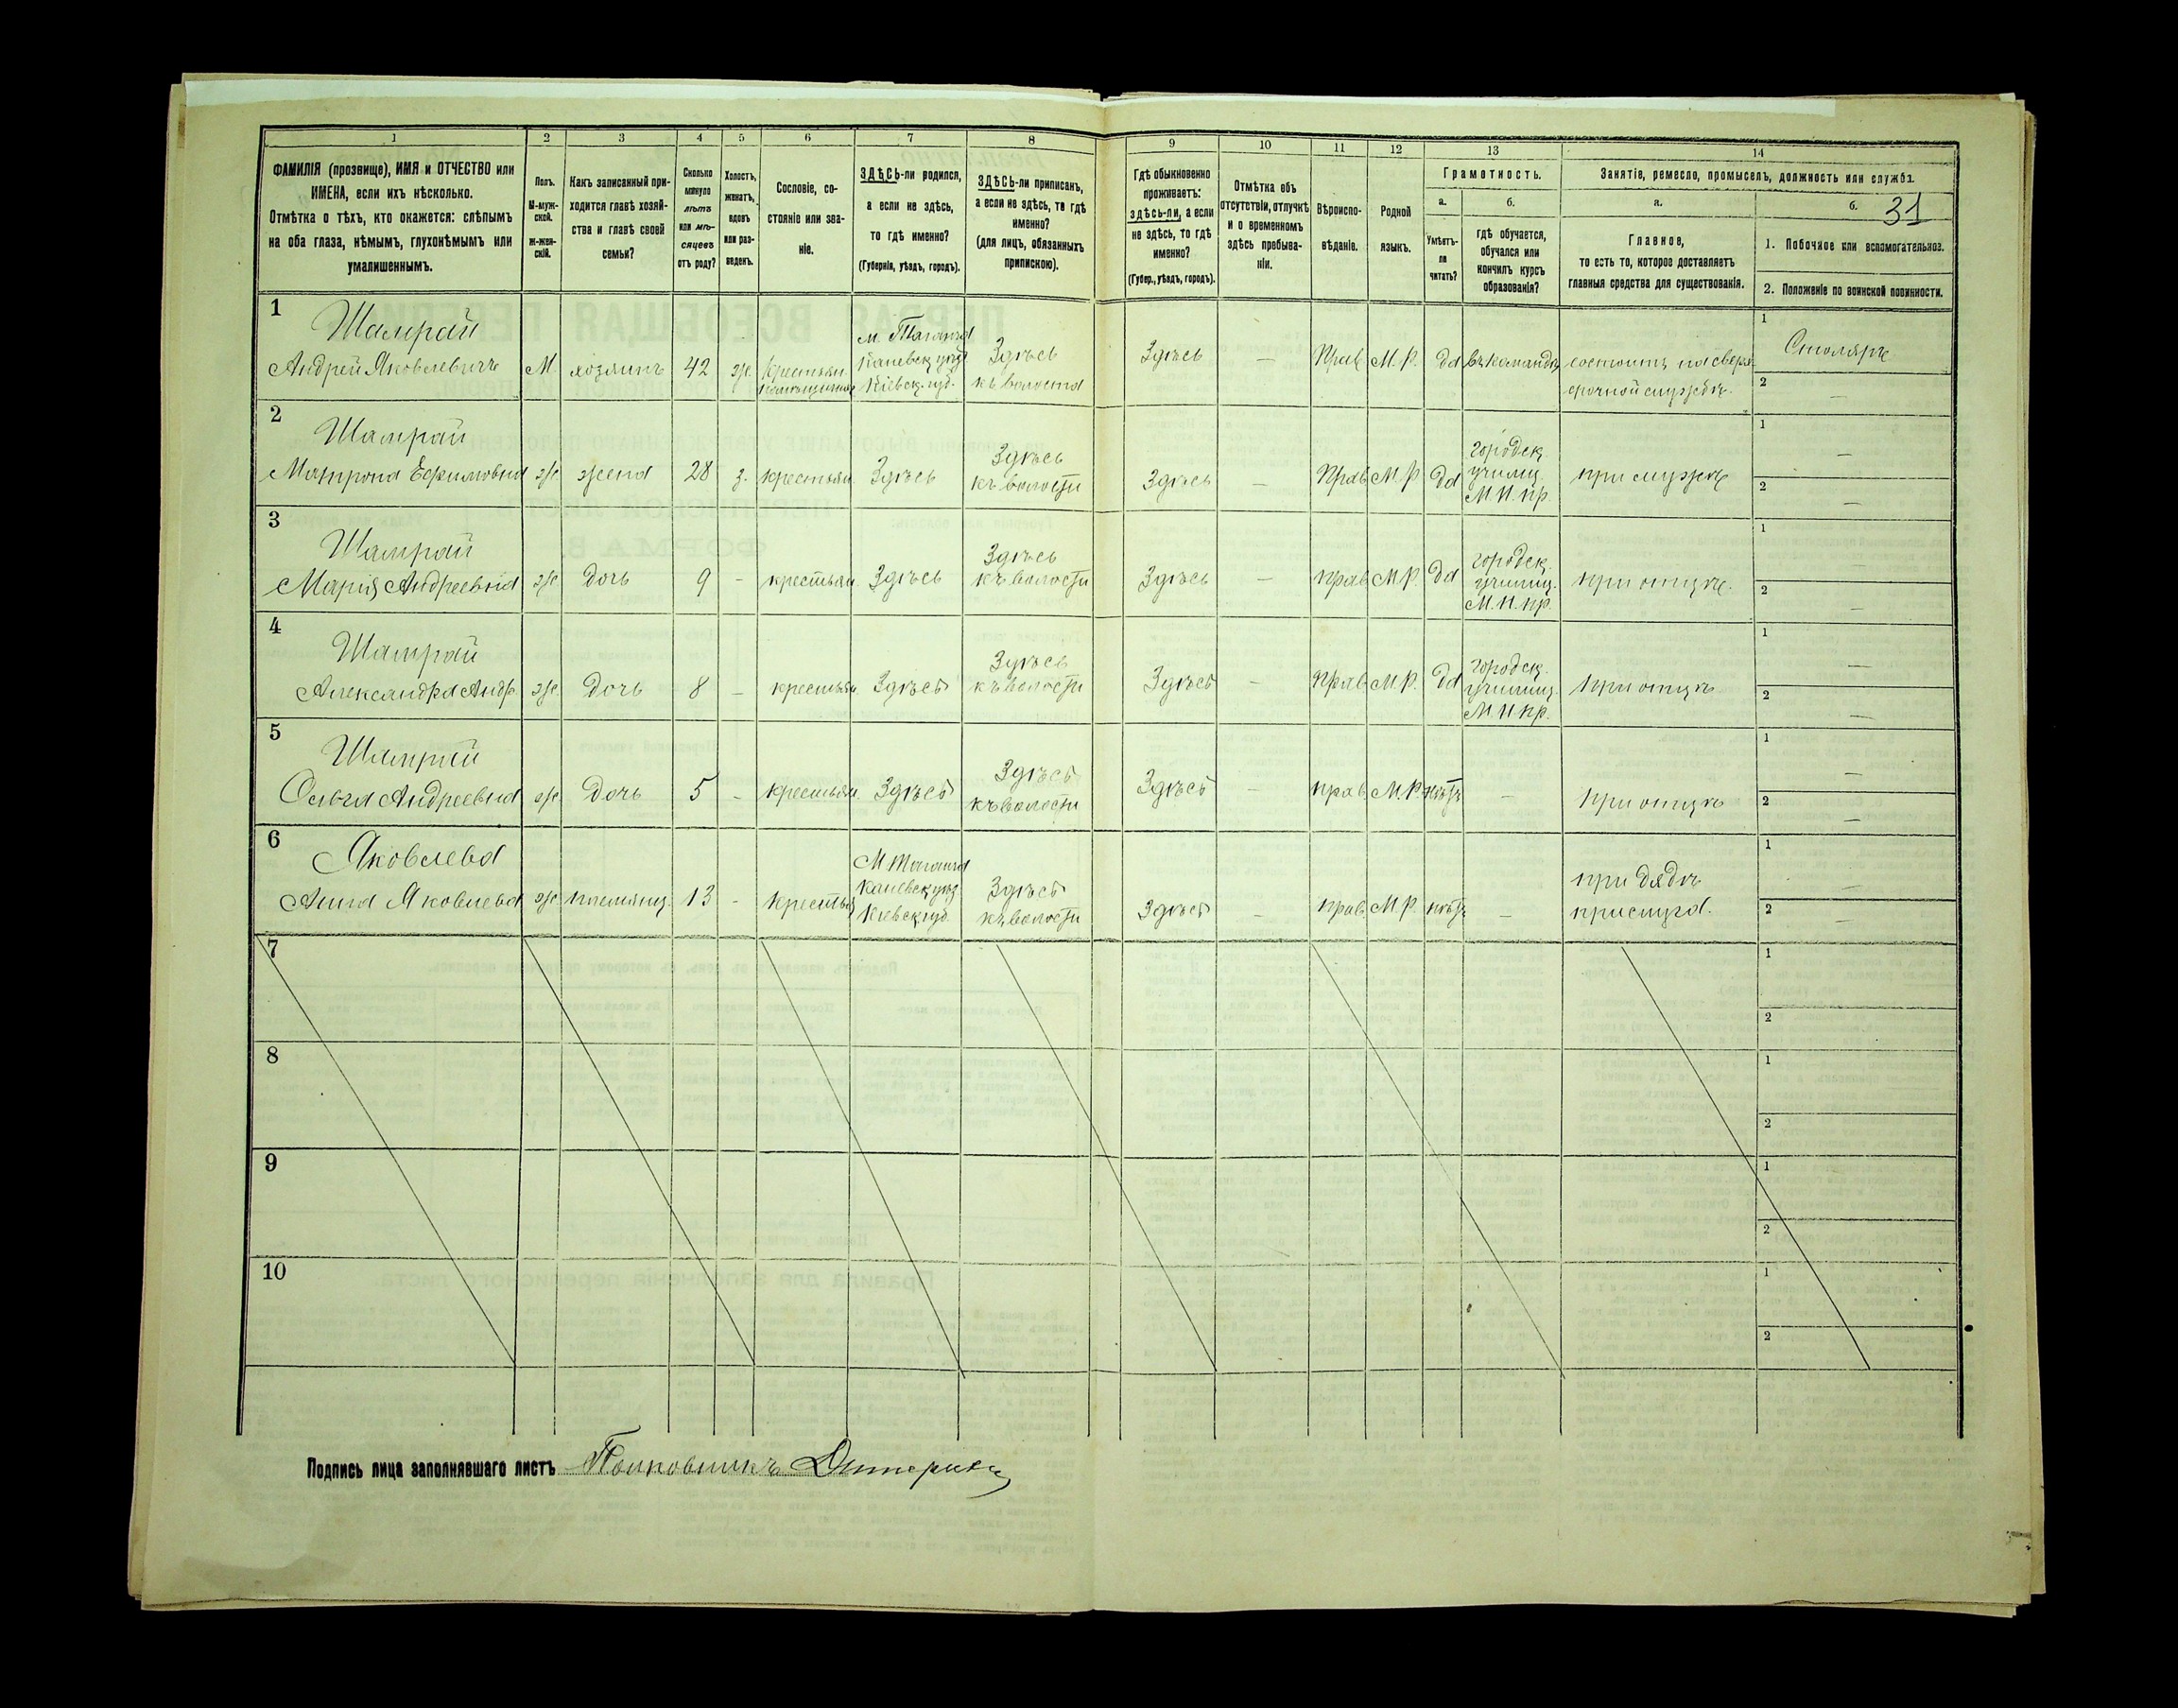 1 2 3 4 5 6 7 8 9 10 11 12 13 14
31
ФАМИЛІЯ (прозвище), ИМЯ и ОТЧЕСТВО или
ИМЕНА, если ихъ нѣсколько.
Отмѣтка о тѣхъ, кто окажется: слѣпымъ
на оба глаза, нѣмымъ, глухонѣмымъ или
умалишеннымъ.
Полъ.
М-муж-
ской.
Ж-жен-
скій.
Какъ записанный при-
ходится главѣ хозяй-
ства и главѣ своей
семьи?
Сколько
минуло
лѣтъ
или мѣ-
сяцевъ
отъ роду?
Холостъ,
женатъ,
вдовъ
или раз-
веденъ.
Сословіе, со-
стояніе или зва-
ніе.
ЗДѢСЬ-ли родился,
а если не здѣсь,
то гдѣ именно?
(Губернія, уѣздъ, городъ).
ЗДѢСЬ-ли приписанъ,
а если не здѣсь, то гдѣ
именно?
(для лицъ, обязанныхъ
припискою).
Гдѣ обыкновенно
проживаетъ:
здѣсь-ли, а если
не здѣсь, то гдѣ
именно?
(Губер., уѣздъ, городъ).
Отмѣтка объ
отсутствіи, отлучкѣ
и о временномъ
здѣсь пребыва-
ніи.
Вѣроиспо-
вѣданіе.
Родной
языкъ.
Грамотность.
а.
Умѣетъ-
ли
читать?
б.
гдѣ обучается,
обучался или
кончилъ курсъ
образованія?
Занятіе, ремесло, промыселъ, должность или служба.
а.
Главное,
то есть то, которое доставляетъ
главныя средства для существованія.
б.
1. Побочное или вспомогательное.
2. Положеніе по воинской повинности.
1
Шамрай
Андрей Яковлевичъ
М.
хозяинъ
42
ж.
Крестьян.
м. Таганча
Каневск. уѣзд
Кіевск. губ.
Здѣсь
къ волости
Здѣсь
—
Прав.
М. Р.
да
въ командѣ
состоитъ на сверх-
срочной службѣ.
1
Столяръ
2
—
2
Шамрай
Матрона Ефимовна
ж.
жена
28
з.
крестьян.
Здѣсь
Здѣсь
къ волости
Здѣсь
—
Прав.
М. Р.
да
городск.
училищ.
М. Н. пр.
при мужѣ
1
—
2
—
3
Шамрай
Марія Андреевна
ж.
дочь
9
-
крестьян.
Здѣсь
Здѣсь
къ волости
Здѣсь
—
прав.
М. Р.
да
городск.
училищ.
М. Н. пр.
при отцѣ.
1
—
2
—
4
Шамрай
Александра Андр.
ж.
дочь
8
-
крестьян.
Здѣсь
Здѣсь
къ волости
Здѣсь
-
прав.
М. Р.
да
городск.
училищ.
М. Н. пр.
при отцѣ
1
—
2
—
5
Шамрай
Ольга Андреевна
ж.
дочь
5
-
крестьян.
Здѣсь
Здѣсь
къ волости
Здѣсь
-
прав.
М. Р.
нѣтъ
—
при отцѣ
1
—
2
—
6
Яковлева
Анна Яковлева
ж.
племянн.
13
-
Крестья
М Таганча
Каневск. уѣз.
Кіевск. губ.
Здѣсь
къ волости
Здѣсь
—
прав.
М. Р.
нѣтъ
—
при дядѣ
прислуга.
1
—
2
—
7
1
2
8
1
2
9
1
2
10
1
2
Подпись лица заполнявшаго листъ Полковникъ